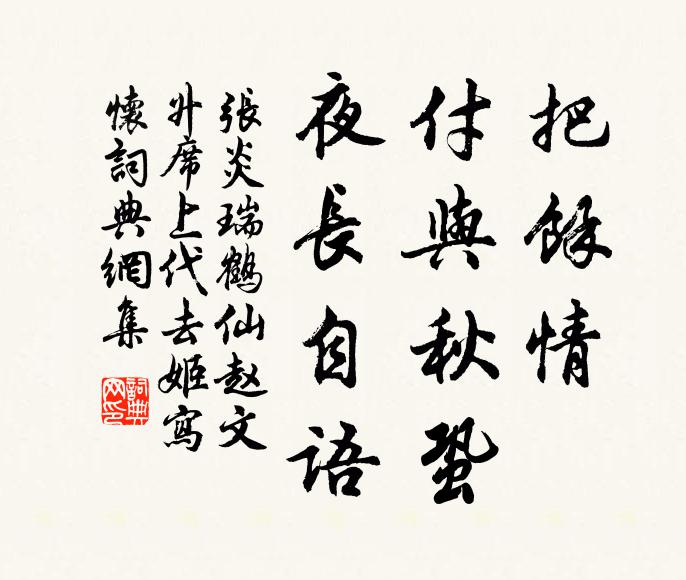 把餘情
付與秋蛩
夜長自語
張炎瑞鶴仙赵文
升席上代去姬寫
懷詞典網集
詞典
网印